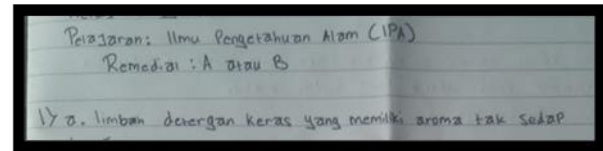 Pelajaran: Ilmu Pengetahuan Alam (IPA)
Remedial : A atau B
1) a. limbah detergan keras yang memiliki aroma tak sedap